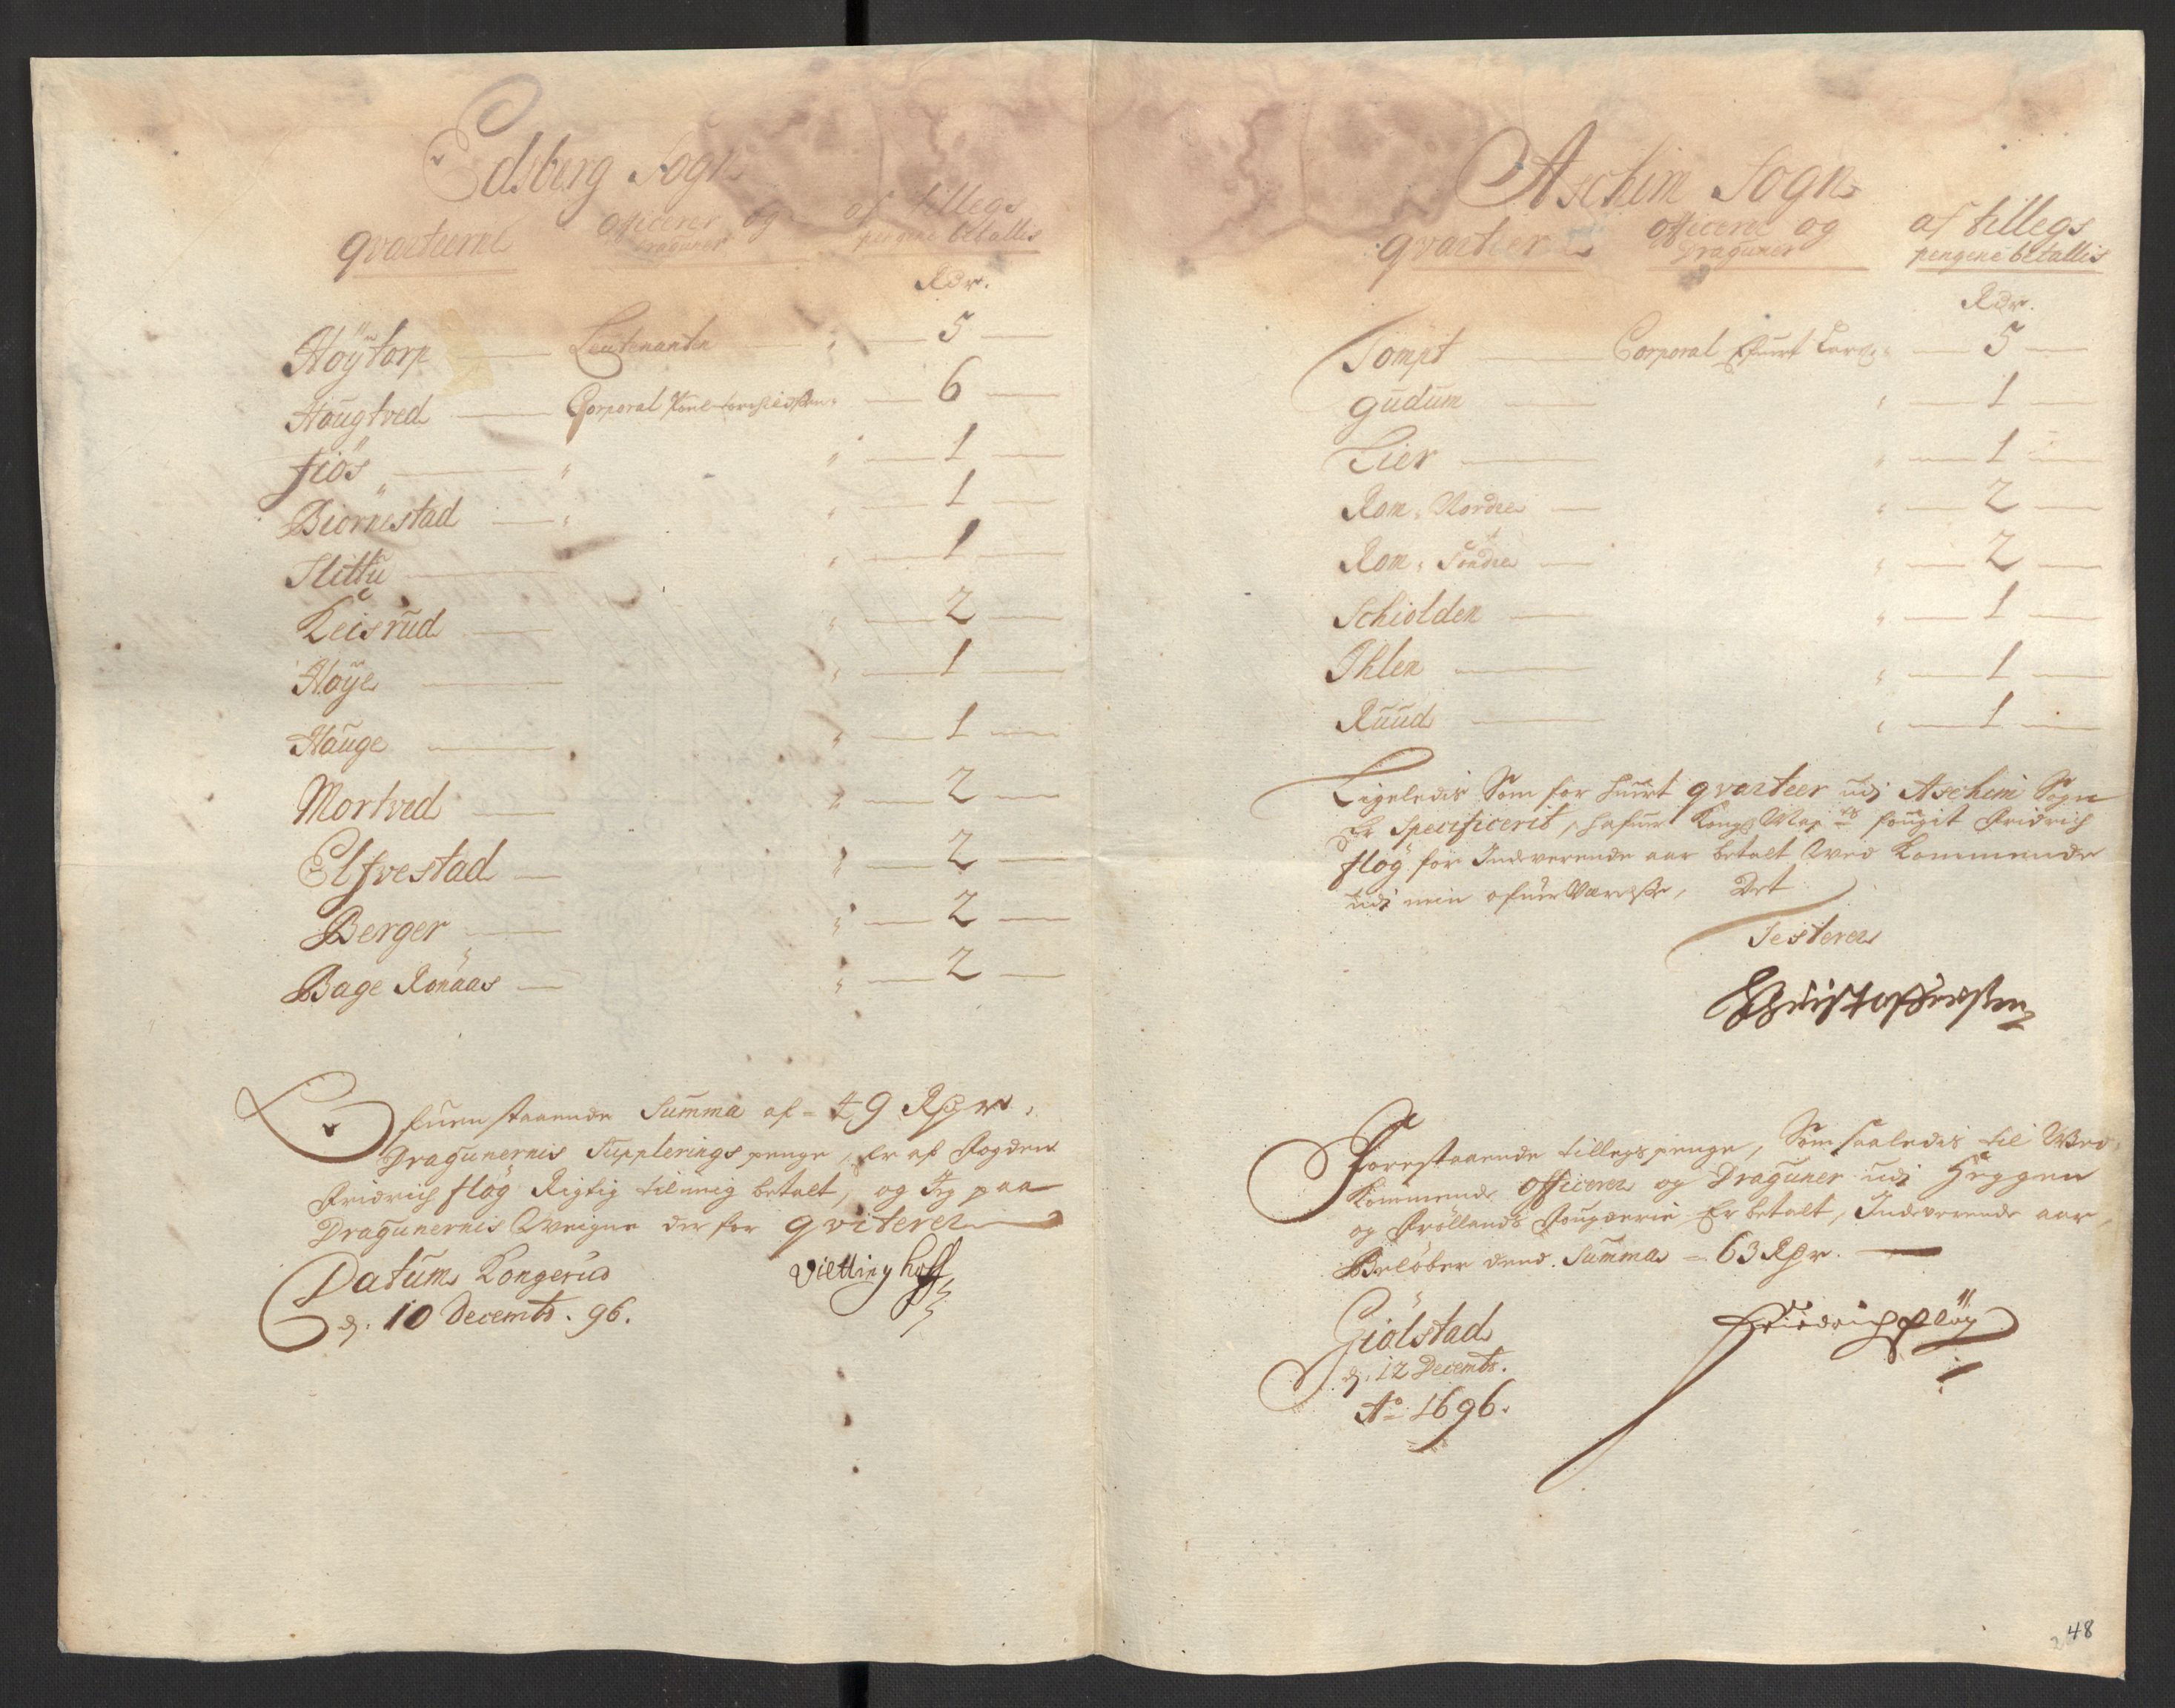 Edsberg Sogn
qvarteerne officerer og Draguner af tillegs pengene betallis
Rdr.
Höÿtorp Leutenanten " 5
Haugtved Corporal " 6
fiös " " 1
Biörnestad " " 1
Slittu " 1
Keisrud " 2
Höÿe " 1
Hauge " 1
Mortved " 2
Elfvestad " 2
Berger " 2
Bage Rönaas " 2
Ofuenstaaende Summa af = 49 Rdr.
Dragunernis Supplerings penge, Er af Fogden
Fridrich flög Rigtig til mig betalt, og Jeg paa
Dragunernis Weigne derfor qviterer
Datum Kongerud
d. 10 Decembr. 96.
Viettinghoff
Aschim Sogn
qvarteerne officerer og Draguner af tillegs pengene betallis
Rdr.
Tompt Corporal 5
gudum " 1
Lier " 1
Rom, Nordre " 2
Rom, Söndre " 2
Schiolden " 1
Ihlen " 1
Ruud " 1
Ligeledis Som for huert qvarteer udj Aschim Sogn
Er Specificerit, hafuer Kongl. May.ts fougit Fridrich
flög for Indeverende aar betalt Wed Kommende
udj min ofuerWærelse, Det
Testerer
Christoffersen
Forestaaende tillegspenge, Som saaledis til Wed-
kommende officerer og Draguner udj Heggen
og Fröllands Fougderie Er betalt, Indeverende aar,
Belöber dend Summa = 63 Rdr.
Giölstad
d. 12 Decembr.
Ao 1696.
Friedrich flög
48